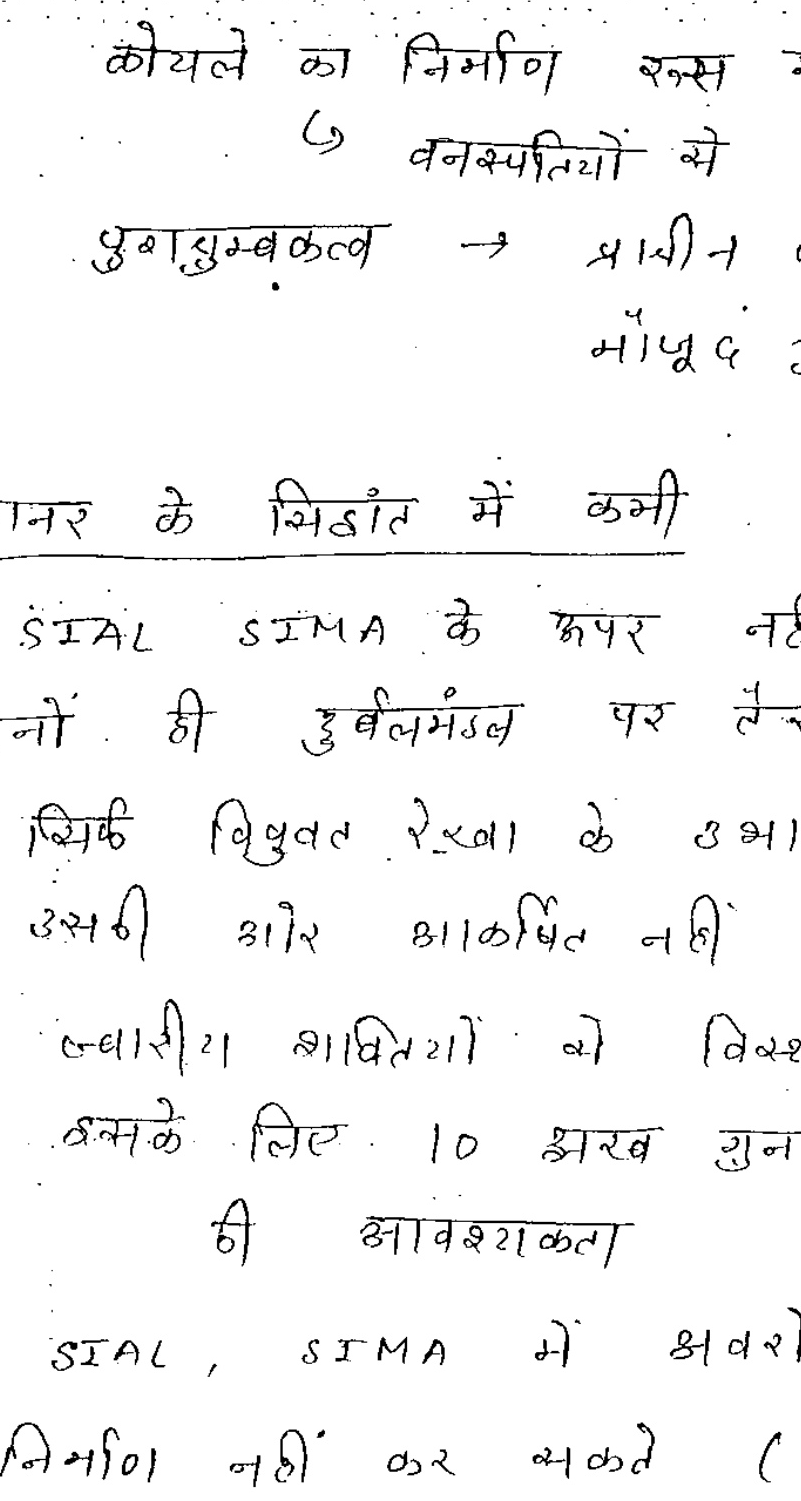 कोयले का निर्माण
↳ वनस्पतियों से
पुराचुम्बकत्व → प्राचीन
मौजूद
के सिद्धांत में कमी
SIAL SIMA के ऊपर
ही दुर्बलमंडल पर
सिर्फ विषुवत रेखा के
उसकी ओर आकर्षित नहीं
ज्वारीय शक्तियों से
इसके लिए 10 अरब
की आवश्यकता
SIAL, SIMA में
निर्माण नहीं कर सकते (